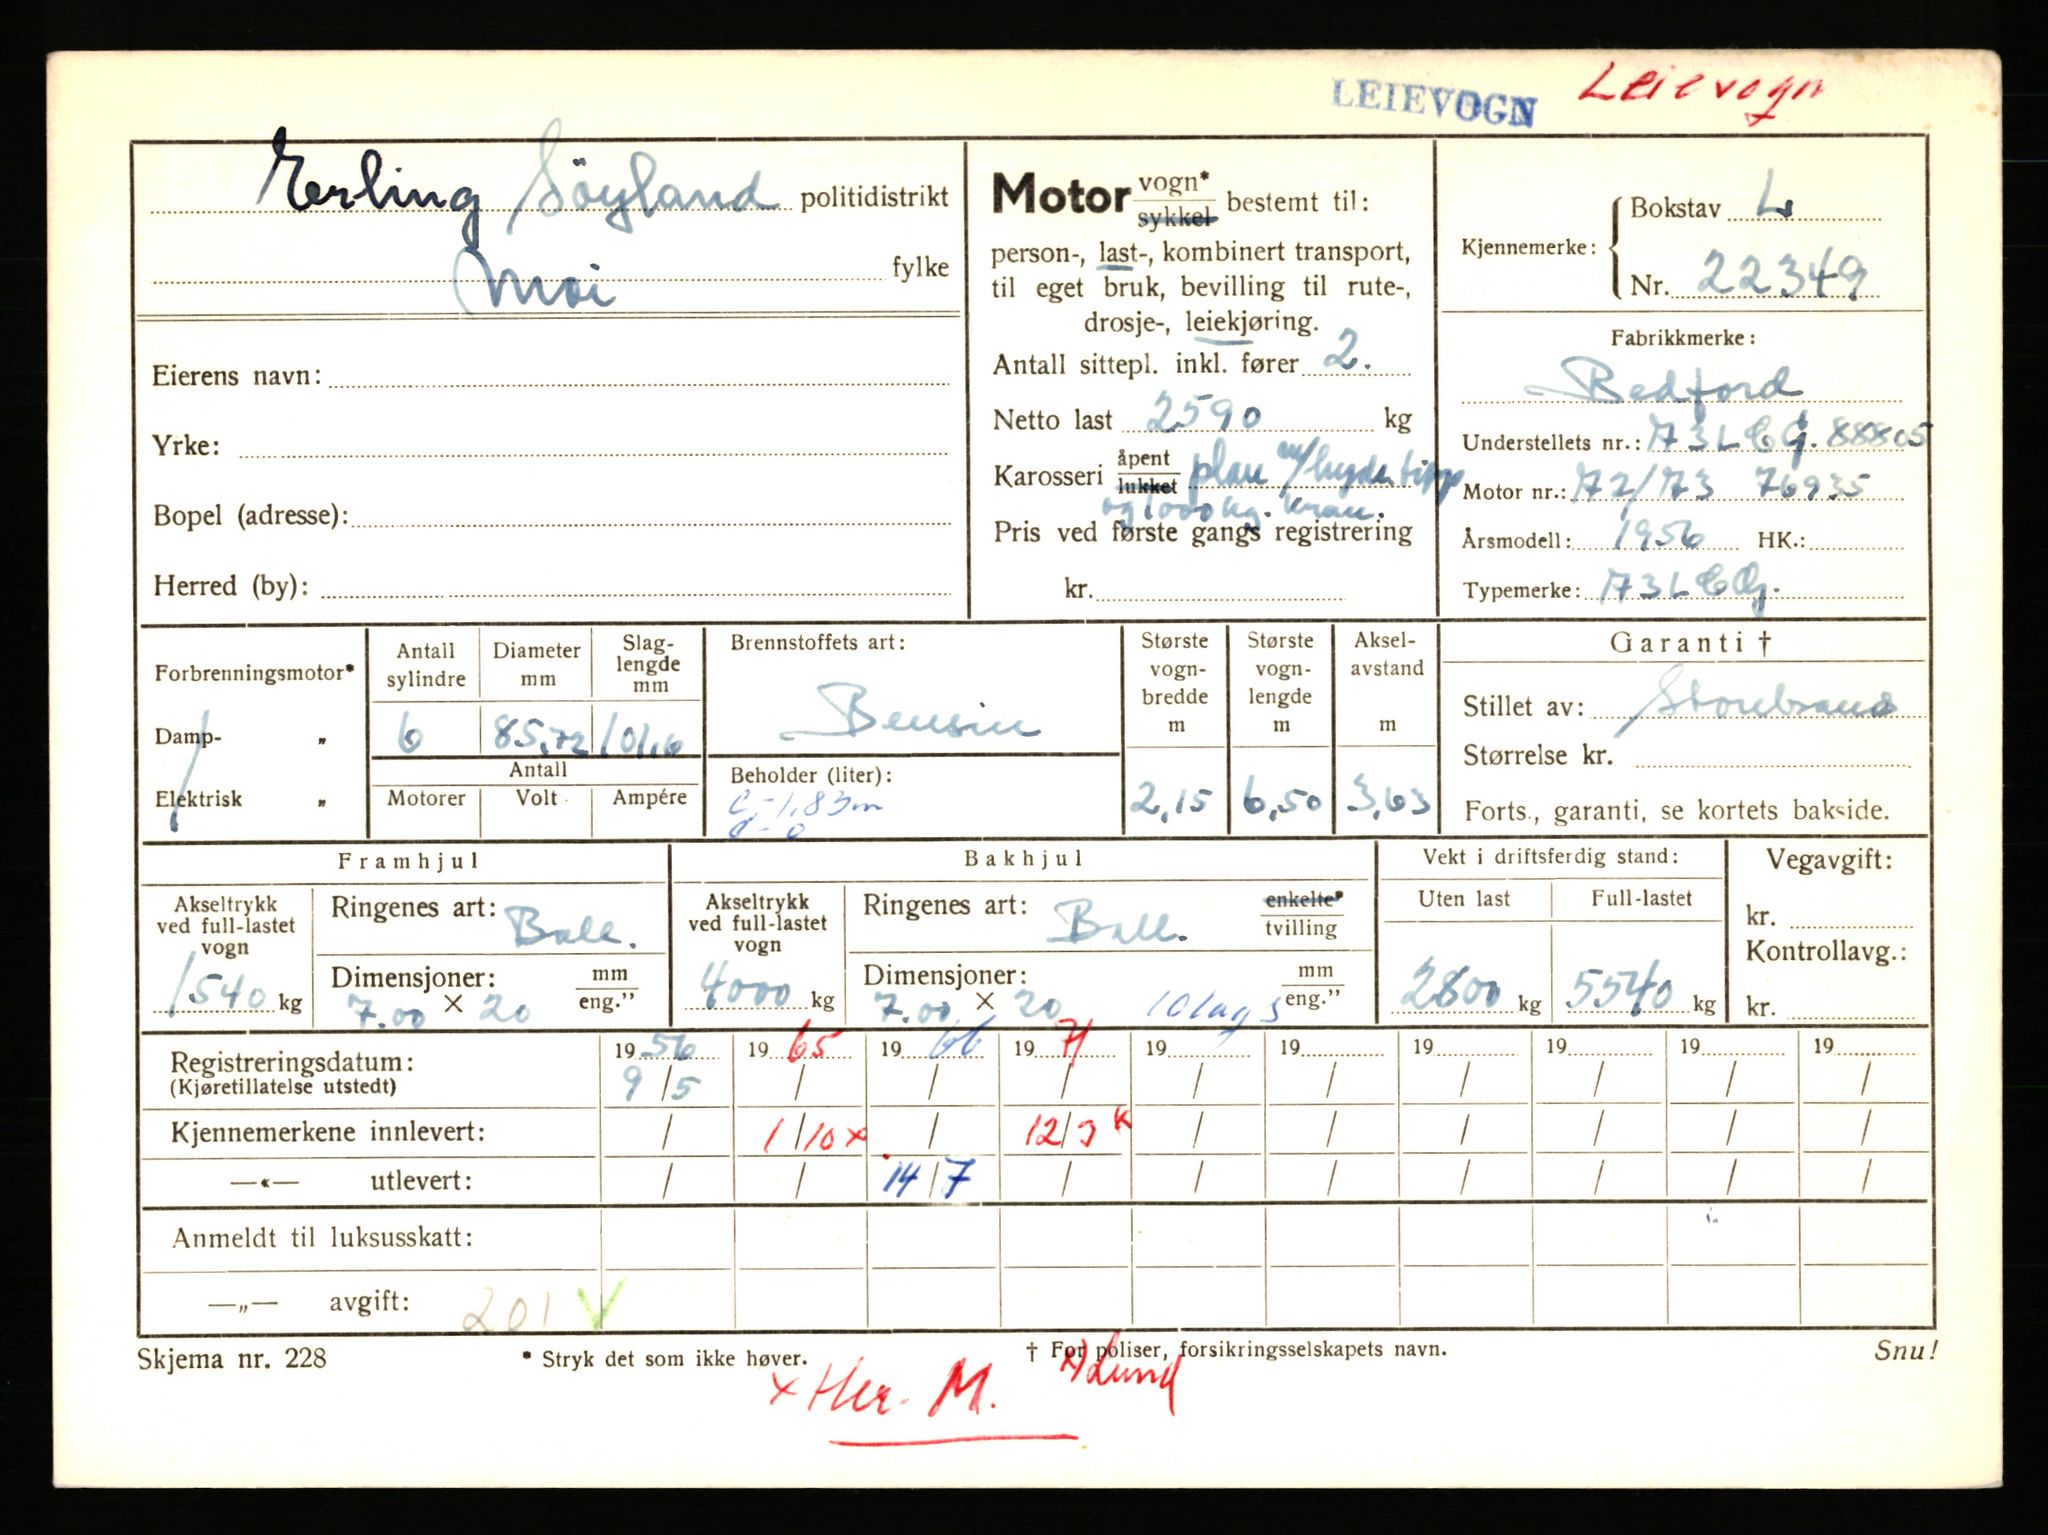 LEIEVOGN Leievogn
Erling Söyland politidistrikt
Moi fylke
Eierens navn:
Yrke:
Bopel (adresse):
Herred (by):
Motor vogn* sykkel bestemt til:
person-, last-, kombinert transport,
til eget bruk, bevilling til rute-,
drosje-, leiekjøring.
Antall sittepl. inkl. fører 2.
Netto last 2590 kg
Karosseri åpent lukket plan m/hydr. tipp
og 1000 kg. kran.
Pris ved første gangs registrering
kr.
Kjennemerke: Bokstav L
Nr. 22349
Fabrikkmerke:
Bedford
Understellets nr.: A3LCG. 88805
Motor nr.: A2/A3 76935
Årsmodell: 1956 HK.:
Typemerke: A3LCG.
Forbrenningsmotor*
Damp- „
Elektrisk „
Antall sylindre
6
Diameter mm
85,72
Slag-
lengde
mm
101,6
Antall
Motorer Volt Ampére
Brennstoffets art:
Bensin
Beholder (liter):
c-1,83m
d-0
Største
vogn-
bredde
m
2,15
Største
vogn-
lengde
m
6,50
Aksel-
avstand
m
3,63
Garanti †
Stillet av: Storebrand
Størrelse kr.
Forts., garanti, se kortets bakside.
Framhjul
Akseltrykk
ved full-lastet
vogn
1540 kg
Ringenes art: Ball.
Dimensjoner: mm
7.00 × 20 eng."
Bakhjul
Akseltrykk
ved full-lastet
vogn
4000 kg
Ringenes art: Ball. enkelte* tvilling
Dimensjoner: mm
7.00 × 20 10 lags eng."
Vekt i driftsferdig stand:
Uten last Full-lastet
2800 kg 5540 kg
Vegavgift:
kr.
Kontrollavg.:
kr.
Registreringsdatum: 1956 1965 1966 1971 19 19 19 19 19 19
(Kjøretillatelse utstedt) 9/5 / / / / / / / / /
Kjennemerkene innlevert: / 1/10 x / 12/3 x / / / / / /
—«— utlevert: / / 14/7 / / / / / / /
Anmeldt til luksusskatt:
—„— avgift: 201 V
Skjema nr. 228 * Stryk det som ikke høver. † For poliser, forsikringsselskapets navn. Snu!
x Her. M. x) Lund